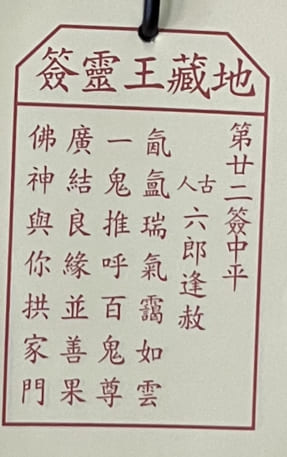 地藏王靈簽
第廿二簽中平
古人
六郎逢赦
氤氳瑞氣靄如雲
一鬼推呼百鬼尊
廣結良緣並善果
佛神與你拱家門